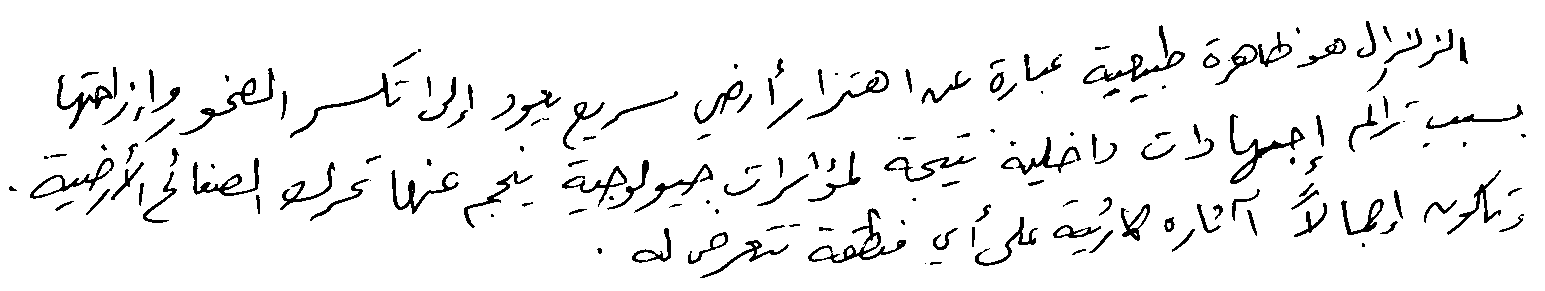 الزلزال هو ظاهرة طبيعية عبارة عن اهتزاز أرضي سريع يعود إلى تكسر الصخور وإزاحتها
بسبب تراكم إجهادات داخلية نتيجة لمؤثرات جيولوجية ينجم عنها تحرك الصفائح الأرضية.
وتكون إجمالاً آثاره كارثية على أي منطقة تتعرض له.